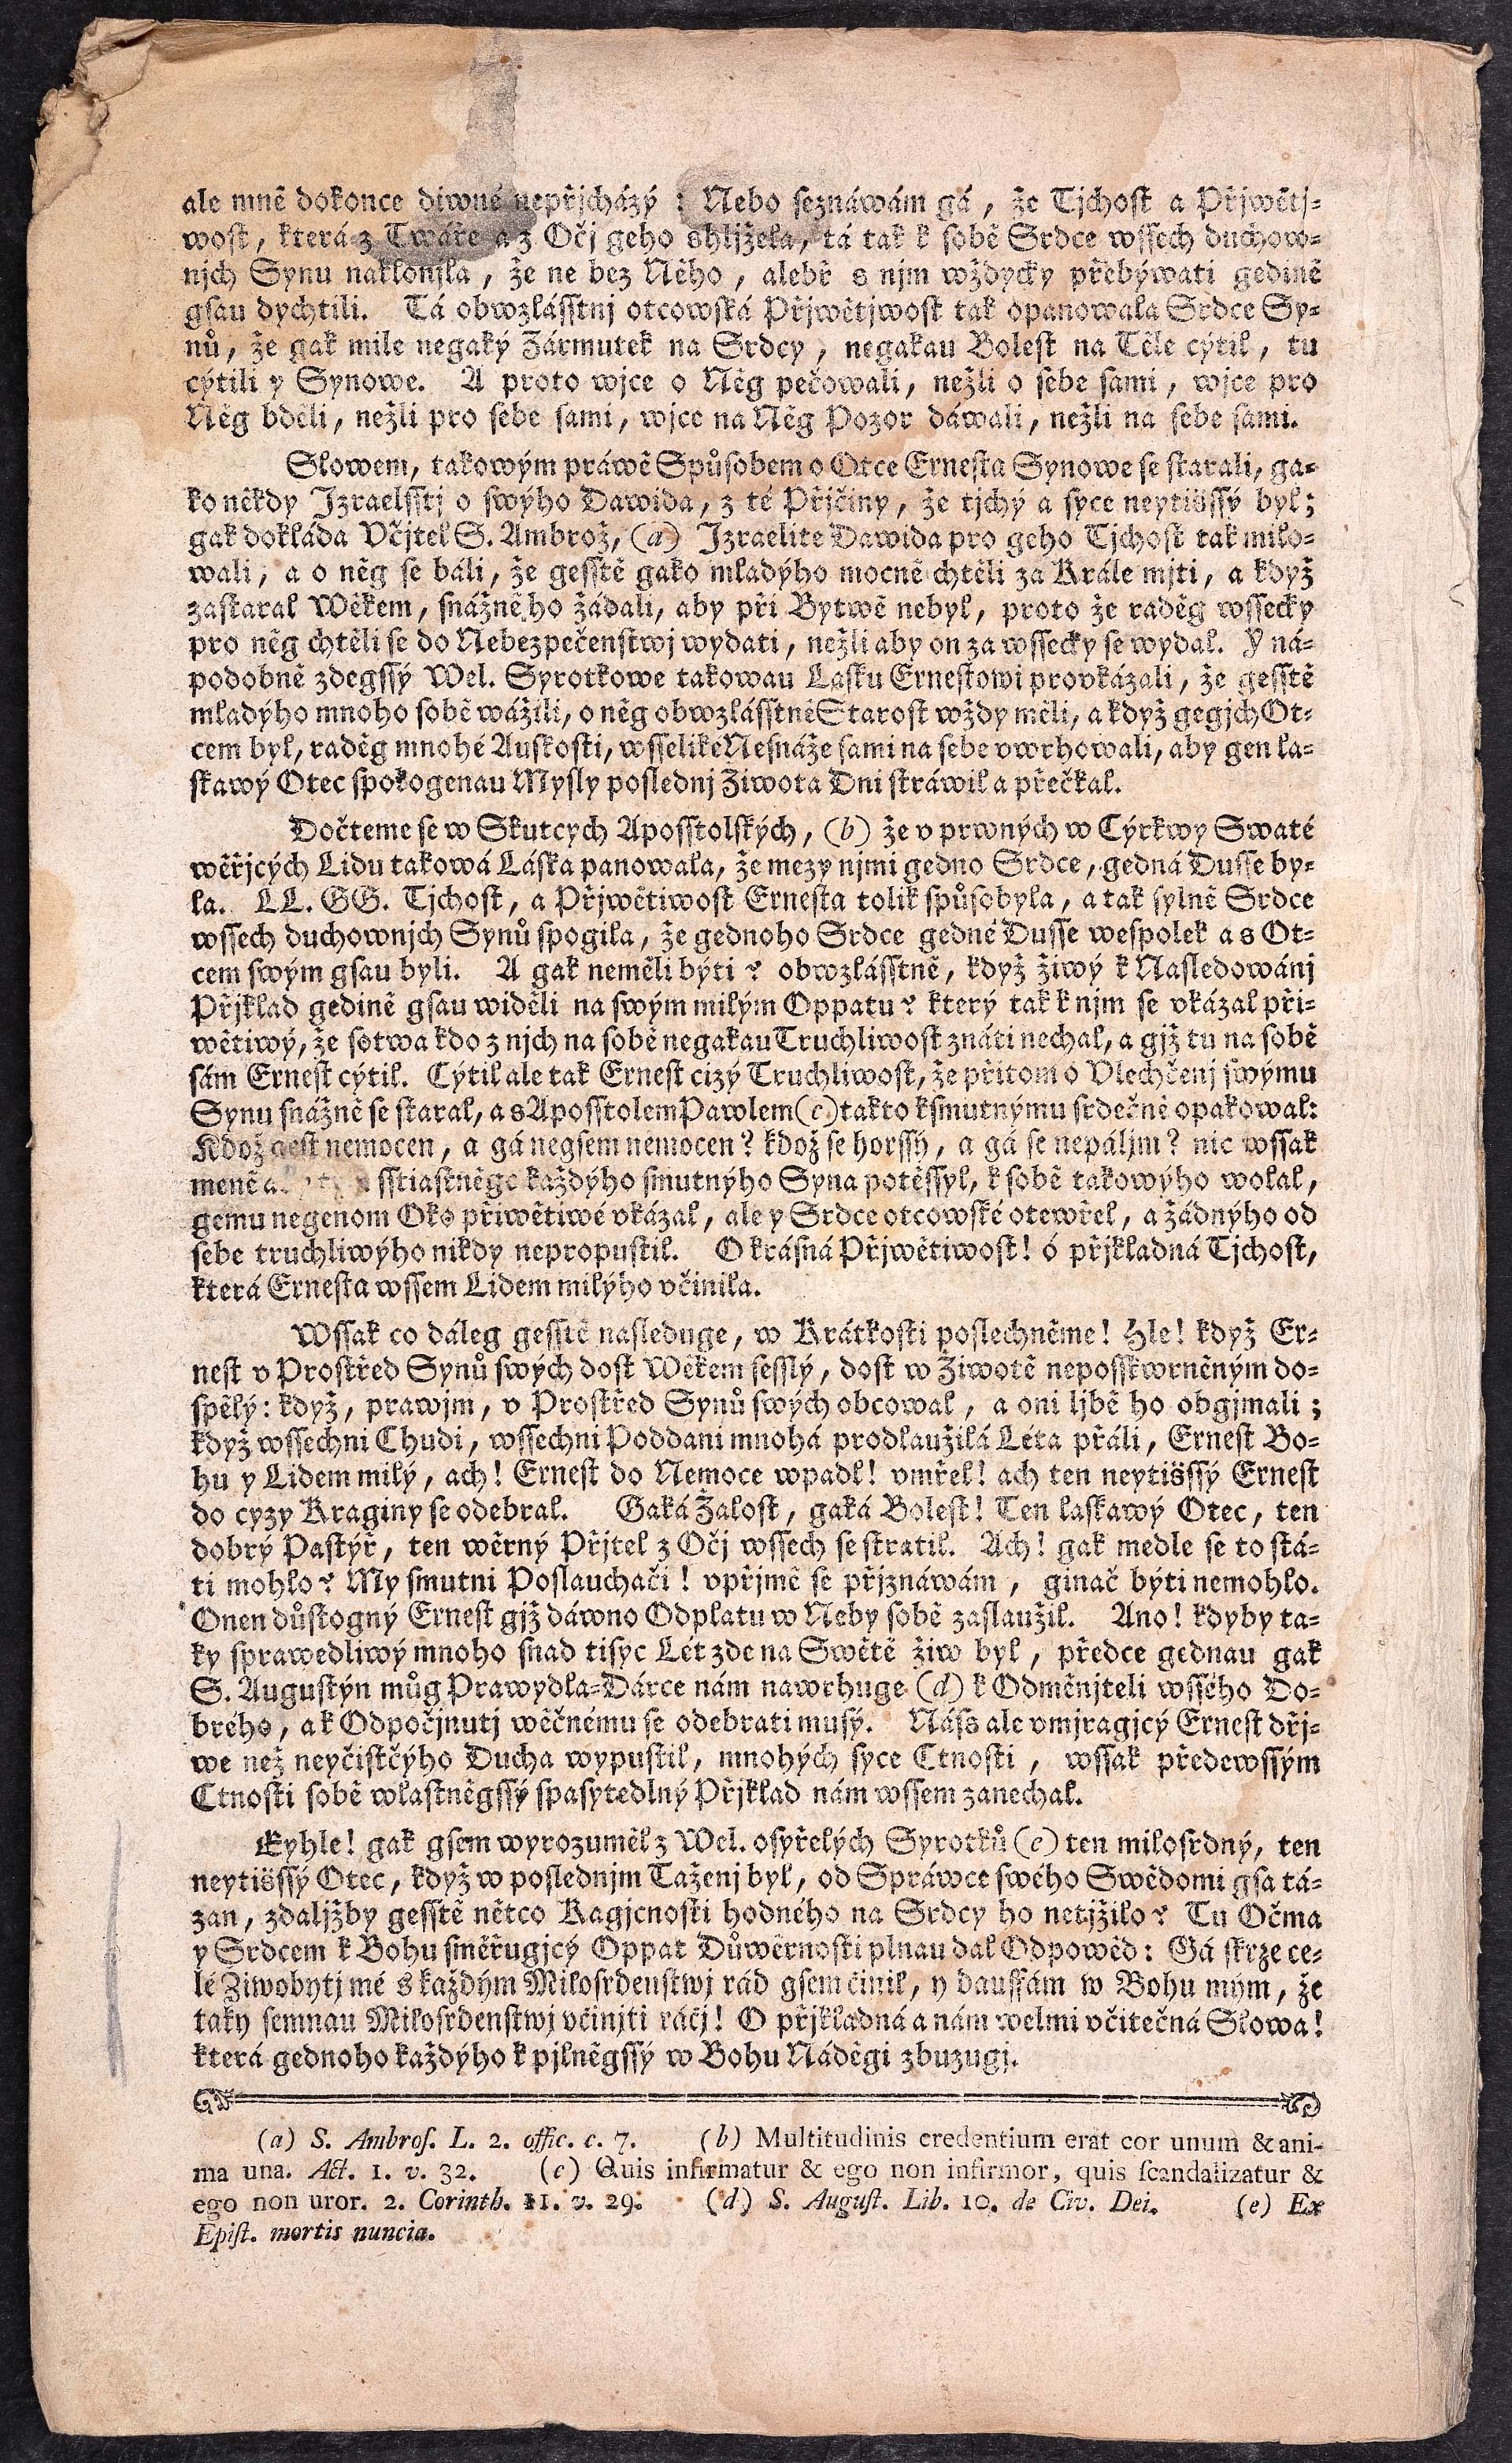 ale mně dokonce diwné nepřjcházý : Nebo seznáwám gá, že Tjchost a Přjwětj-
wost, která z Twáře a z Očj geho shljžela, tá tak k sobě Srdce wssech duchow-
njch Synu naklonjla, že ne bez Něho, alebř s njm wždycky přebýwati gedině
gsau dychtili. Tá obwzlásstnj otcowská Přjwětjwost tak opanowala Srdce Sy-
nů, že gak mile negaký Zármutek na Srdcy, negakau Bolest na Těle cýtil, tu
cýtili y Synowe. A proto wjce o Něg pečowali, nežli o sebe sami, wjce pro
Něg bděli, nežli pro sebe sami, wjce na Něg Pozor dáwali, nežli na sebe sami.
Slowem, takowým práwě Spůsobem o Otce Ernesta Synowe se starali, ga-
ko někdy Izraelsstj o swýho Dawida, z té Přjčiny, že tjchý a syce neytišssý byl;
gak dokláda Včjtel S. Ambrož, (a) Izraelite Dawida pro geho Tjchost tak milo-
wali, a o něg se báli, že gesstě gako mladýho mocně chtěli za Krále mjti, a když
zastaral Wěkem, snážně ho žádali, aby při Bytwě nebyl, proto že raděg wssecky
pro něg chtěli se do Nebezpečenstwj wydati, nežli aby on za wssecky se wydal. Y ná-
podobně zdegssý Wel. Syrotkowe takowau Lasku Ernestowi provkázali, že gesstě
mladýho mnoho sobě wážili, o něg obwzlásstně Starost wždy měli, a když gegjch Ot-
cem byl, raděg mnohé Auskosti, wsselike Nesnáže sami na sebe vwrhowali, aby gen la-
skawý Otec spokogenau Mysly poslednj Ziwota Dni stráwil a přečkal.
Dočteme se w Skutcych Aposstolských, (b) že v prwných w Cýrkwy Swaté
wěřjcých Lidu taková Láska panowala, že mezy njmi gedno Srdce, gedná Dusse by-
la. LL. GG. Tjchost, a Přjwětiwost Ernesta tolik spůsobyla, a tak sylně Srdce
wssech duchownjch Synů spogila, že gednoho Srdce gedné Dusse wespolek a s Ot-
cem swým gsau byli. A gak neměli býti? obwzlásstně, když žiwý k Nasledowánj
Přjklad gedině gsau widěli na swým milým Oppatu? který tak k njm se vkázal při-
wětiwý, že sotwa kdo z njch na sobě negakau Truchliwost znáti nechal, a gjž tu na sobě
sám Ernest cýtil. Cýtil ale tak Ernest cizý Truchliwost, že přitom o Vlechčenj swýmu
Synu snážně se staral, a s Aposstolem Pawlem (c) takto k smutnýmu srdečně opakowal:
Kdož gest nemocen, a gá negsem nemocen? kdož se horssý, a gá se nepáljm? nic wssak
meně a sstiastněge každýho smutnýho Syna potěssyl, k sobě takowýho wolal,
gemu negenom Oko přiwětiwé vkázal, ale y Srdce otcowské otewřel, a žádnýho od
sebe truchliwýho nikdy nepropustil. O krásná Přjwětiwost! ó přjkladná Tjchost,
která Ernesta wssem Lidem milýho včinila.
Wssak co dáleg gesstě nasleduge, w Krátkosti poslechněme! Hle! když Er-
nest v Prostřed Synů swých dost Wěkem sesslý, dost w Ziwotě neposskwrněným do-
spělý: když, prawjm, v Prostřed Synů swých obcowal, a oni ljbě ho obgjmali;
když wssechni Chudi, wssechni Poddani mnohá prodlaužilá Léta přáli, Ernest Bo-
hu y Lidem milý, ach! Ernest do Nemoce wpadl! vmřel! ach ten neytišssý Ernest
do cyzy Kraginy se odebral. Gaká Žalost, gaká Bolest! Ten laskawý Otec, ten
dobrý Pastýř, ten wěrný Přjtel z Očj wssech se stratil. Ach! gak medle se to stá-
ti mohlo? My smutni Poslauchači! vpřjmě se přjznáwám, ginač býti nemohlo.
Onen důstogný Ernest gjž dáwno Odplatu w Neby sobě zaslaužil. Ano! kdyby ta-
ky sprawedliwý mnoho snad tisýc Lét zde na Swětě žiw byl, předce gednau gak
S. Augustýn můg Prawydla-Dárce nám nawrhuge (d) k Odměnjteli wssého Do-
brého, a k Odpočjnutj wěčnému se odebrati musý. Náss ale vmjragjcý Ernest dřj-
we než neyčistčýho Ducha wypustil, mnohých syce Ctnosti, wssak předewssým
Ctnosti sobě wlastněgssý spasytedlný Přjklad nám wssem zanechal.
Eyhle! gak gsem wyrozuměl z Wel. osyřelých Syrotků (e) ten milosrdný, ten
neytišssý Otec, když w poslednjm Taženj byl, od Spráwce swého Swědomi gsa tá-
zan, zdaljžby gesstě nětco Kagjcnosti hodného na Srdcy ho netjžilo? Tu Očma
y Srdcem k Bohu směřugjcý Oppat Důwěrnosti plnau dal Odpowěd: Gá skrze ce-
lé Ziwobytj mé s každým Milosrdenstwj rád gsem činil, y dauffám w Bohu mým, že
taky semnau Milosrdenstwj včinjti ráčj! O přjkladná a nám welmi včitečná Slowa!
která gednoho každýho k pjlněgssý w Bohu Náděgi zbuzugj.
(a) S. Ambros. L. 2. offic. c. 7. (b) Multitudinis credentium erat cor unum & ani-
ma una. Act. 1. v. 32. (c) Quis infirmatur & ego non infirmor, quis scandalizatur &
ego non uror. 2. Corinth. 11. v. 29. (d) S. August. Lib. 10. de Civ. Dei. (e) Ex
Epist. mortis nuncia.